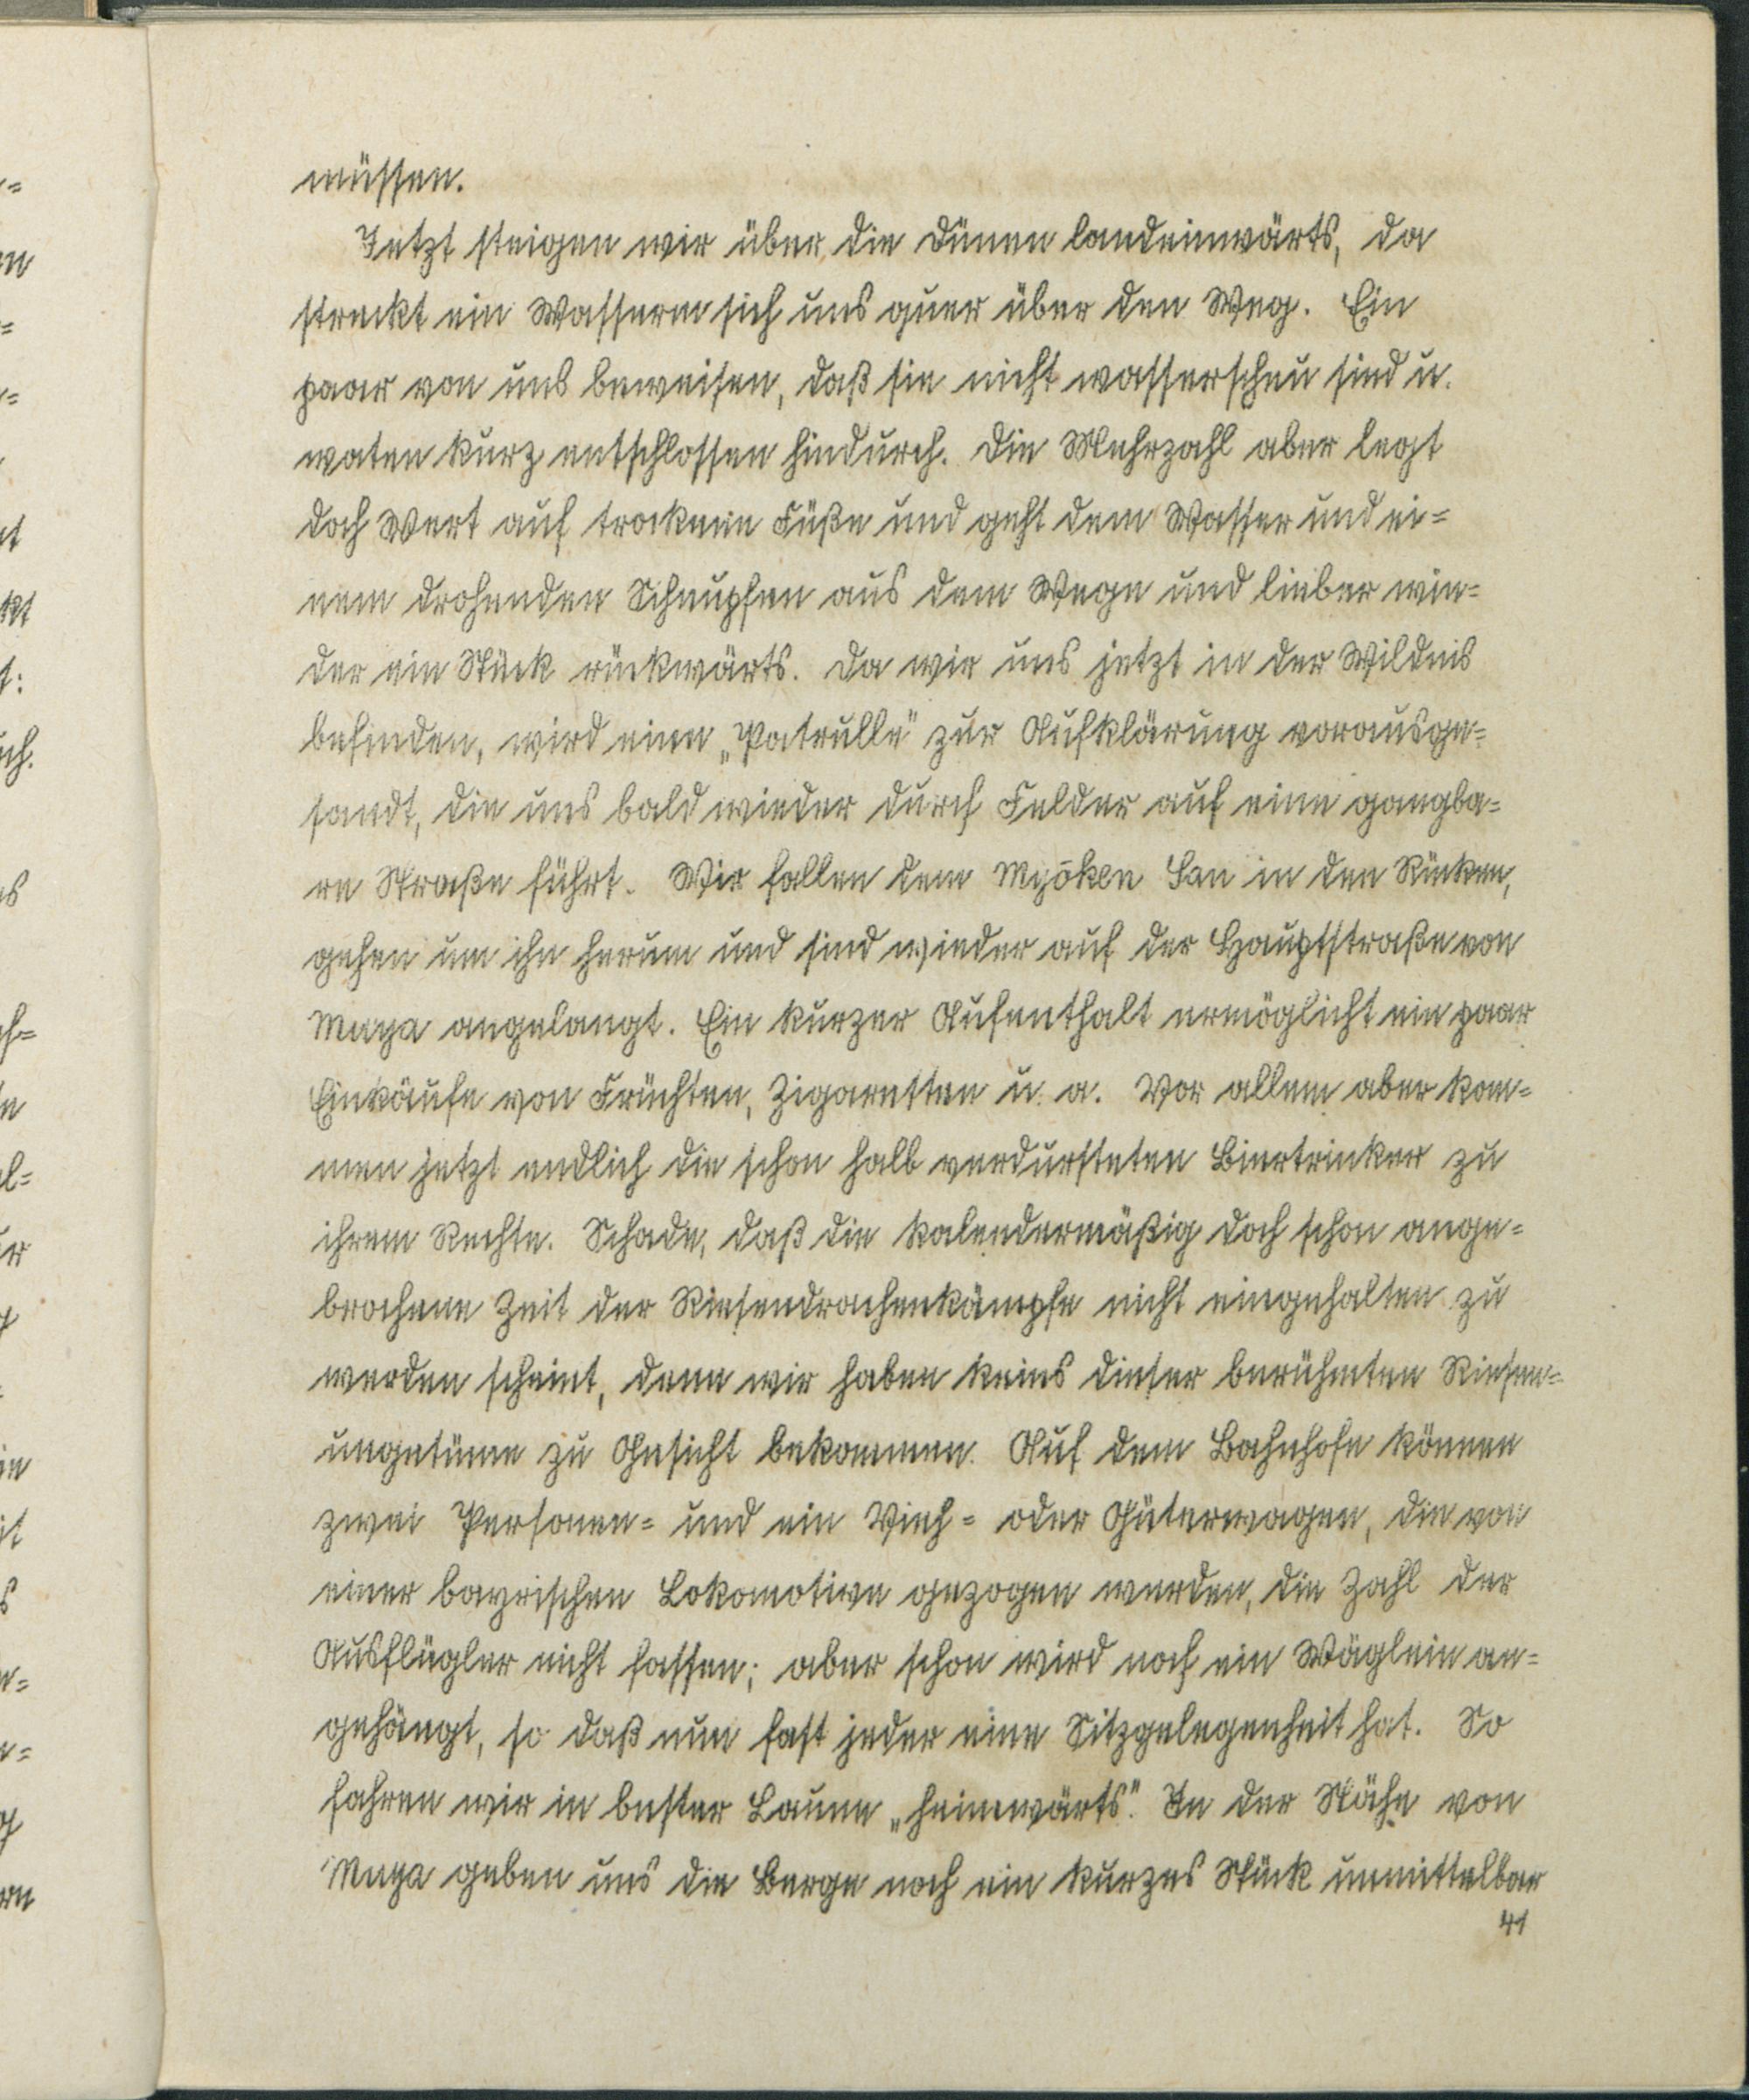 müssen.
Jetzt steigen wir über die Dünen landeinwärts, da
streckt ein Wasserarm sich uns quer über den Weg. Ein
paar von uns beweisen, daß sie nicht wasserscheu sind u.
waten kurz entschlossen hindurch. Die Mehrzahl aber legt
doch Wert auf trockene Füße und geht dem Wasser und ei=
nem drohenden Schnupfen aus dem Wege und lieber wie=
der ein Stück rückwärts. Da wir uns jetzt in der Wildnis
befinden, wird eine „Patrulle" zur Aufklärung vorausge=
sandt, die uns bald wieder durch Felder auf eine gangba=
re Straße führt. Wir fallen dem Myōken San in den Rücken,
gehen um ihn herum und sind wieder auf der Hauptstraße von
Muya angelangt. Ein kurzer Aufenthalt ermöglicht ein paar
Einkäufe von Früchten, Zigaretten u. a. Vor allem aber kom=
men jetzt endlich die schon halb verdursteten Biertrinker zu
ihrem Rechte. Schade, daß die kalendermäßig doch schon ange=
brochene Zeit der Riesendrachenkämpfe nicht eingehalten zu
werden scheint, denn wir haben keins dieser berühmten Riesen=
ungetüme zu Gesicht bekommen. Auf dem Bahnhofe können
zwei Personen= und ein Vieh= oder Güterwagen, die von
einer bayrischen Lokomotive gezogen werden, die Zahl der
Ausflügler nicht fassen; aber schon wird noch ein Wäglein an=
gehängt, so daß nun fast jeder eine Sitzgelegenheit hat. So
fahren wir in bester Laune „heimwärts". In der Nähe von
Muya geben uns die Berge noch ein kurzes Stück unmittelbar
41